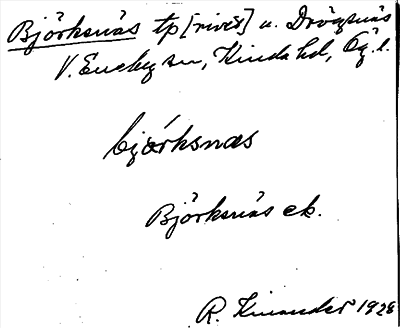 Björksnäs tp [rivet] u. Drögsnäs
V. Eneby sn, Kinda hd, Ög. l.
bjórksnæs
Björksnäs ek.
R. Kinander 1928